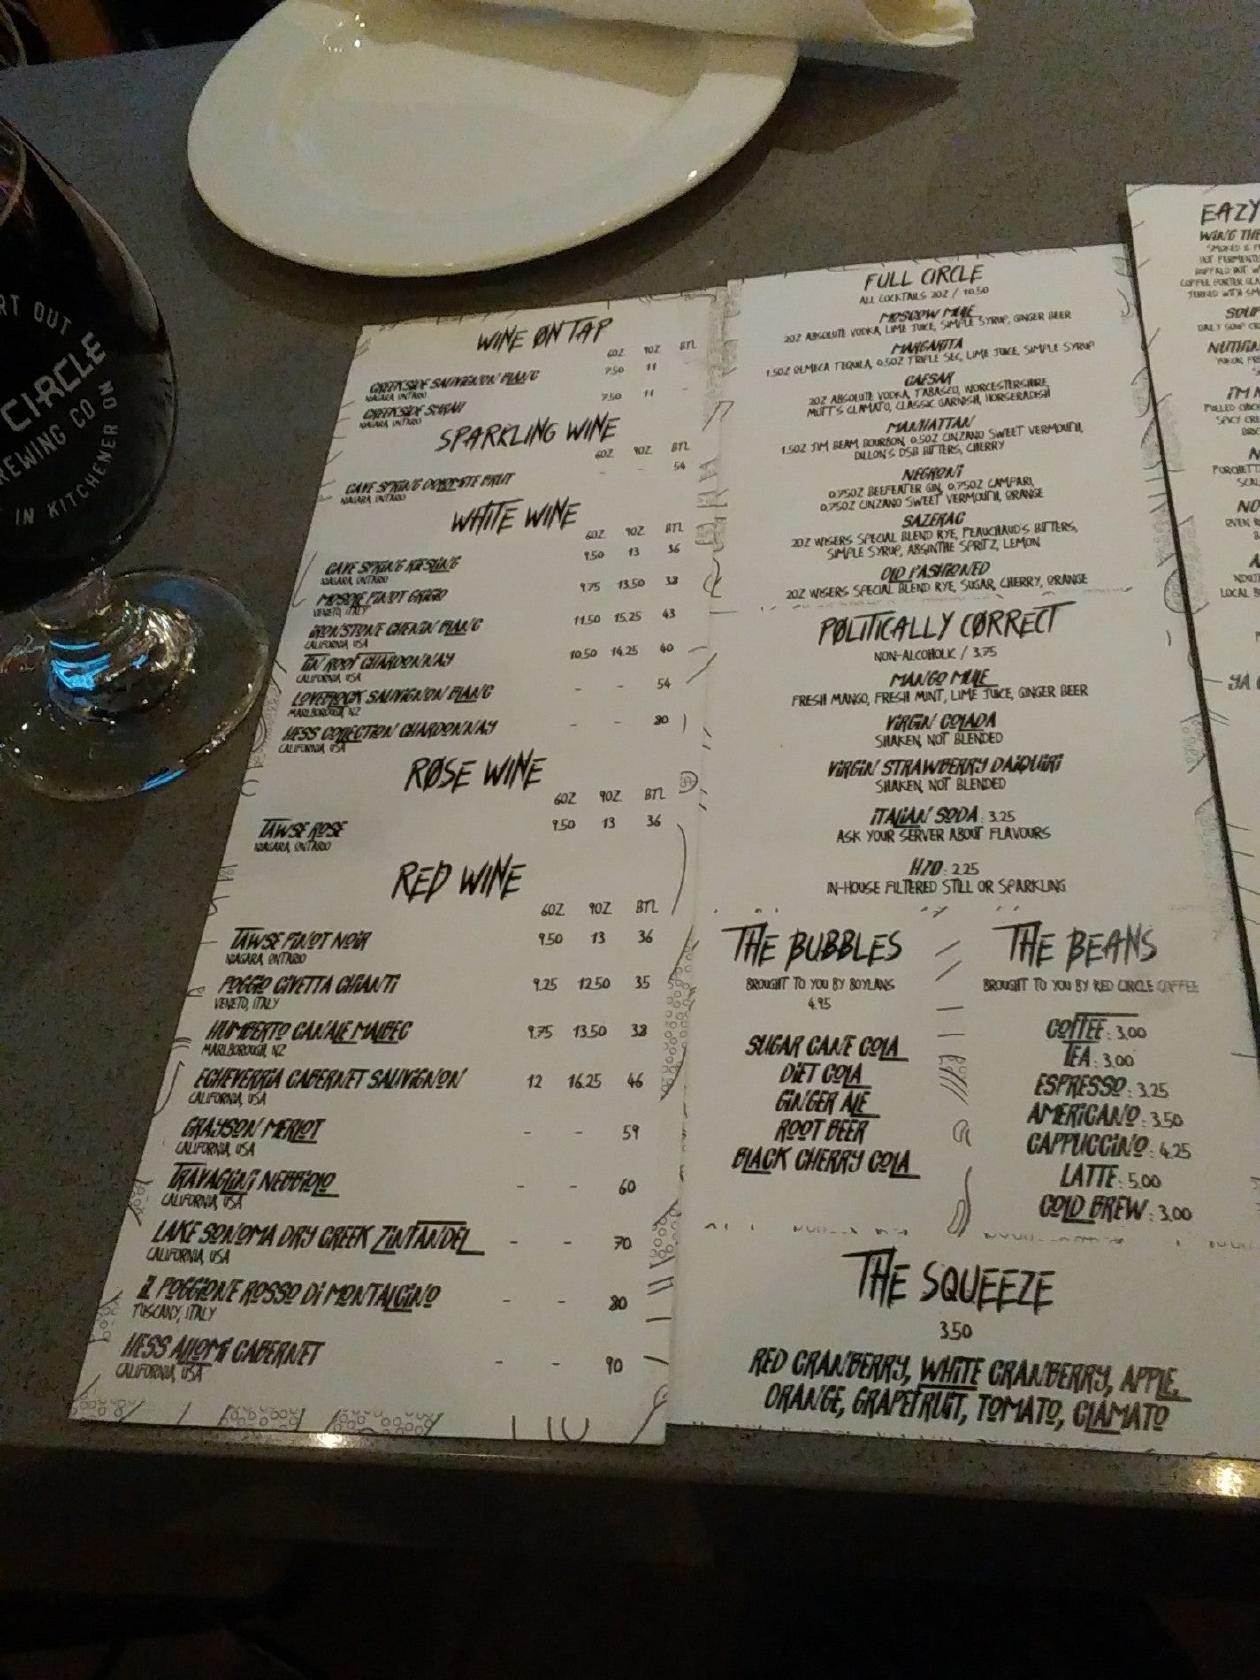 RT OUT
CIRCLE
REWING CO
IN KITCHENER ON
WINE ON TAP
6OZ 9OZ BTL
CREEKSIDE SAUVIGNON BLANC 7.50 11 -
NIAGARA, ONTARIO
CREEKSIDE SHIRAZ 7.50 11 -
NIAGARA, ONTARIO
SPARKLING WINE
6OZ 9OZ BTL
CAVE SPRING DOLOMITE BRUT - - 54
NIAGARA, ONTARIO
WHITE WINE
6OZ 9OZ BTL
CAVE SPRING RIESLING 9.50 13 36
NIAGARA, ONTARIO
PINOT GRIGIO 9.75 13.50 38
VENETO, ITALY
IRONSTONE CHENIN BLANC 11.50 15.25 43
CALIFORNIA, USA
TIN ROOF CHARDONNAY 10.50 14.25 40
CALIFORNIA, USA
LOVEBLOCK SAUVIGNON BLANC - - 54
MARLBOROUGH, NZ
HESS COLLECTION CHARDONNAY - - 80
CALIFORNIA, USA
RØSE WINE
6OZ 9OZ BTL
TAWSE ROSE 9.50 13 36
NIAGARA, ONTARIO
RED WINE
6OZ 9OZ BTL
TAWSE PINOT NOIR 9.50 13 36
NIAGARA, ONTARIO
POGGIO CIVETTA CHIANTI 9.25 12.50 35
VENETO, ITALY
HUMBERTO CANALE MALBEC 9.75 13.50 38
MARLBOROUGH, NZ
ECHEVERRIA CABERNET SAUVIGNON 12 16.25 46
CALIFORNIA, USA
GRAYSON MERLOT - - 59
CALIFORNIA, USA
TRAVAGLINI NEBBIOLO - - 60
CALIFORNIA, USA
LAKE SONOMA DRY CREEK ZINFANDEL - - 70
CALIFORNIA, USA
IL POGGIONE ROSSO DI MONTALCINO - - 80
TUSCANY, ITALY
HESS ALLOMI CABERNET - - 90
CALIFORNIA, USA
FULL CIRCLE
ALL COCKTAILS 2OZ / 10.50
MOSCOW MULE
2OZ ABSOLUTE VODKA, LIME JUICE, SIMPLE SYRUP, GINGER BEER
MARGARITA
1.5OZ OLMECA TEQUILA, 0.5OZ TRIPLE SEC, LIME JUICE, SIMPLE SYRUP
CAESAR
2OZ ABSOLUTE VODKA, TABASCO, WORCESTERSHIRE,
MOTT'S CLAMATO, CLASSIC GARNISH, HORSERADISH
MANHATTAN
1.5OZ JIM BEAM BOURBON, 0.5OZ CINZANO SWEET VERMOUTH,
DILLON'S DSB BITTERS, CHERRY
NEGRONI
0.75OZ BEEFEATER GIN, 0.75OZ CAMPARI,
0.75OZ CINZANO SWEET VERMOUTH, ORANGE
SAZERAC
2OZ WISERS SPECIAL BLEND RYE, PEAUCHAUD'S BITTERS,
SIMPLE SYRUP, ABSINTHE SPRITZ, LEMON
OLD FASHIONED
2OZ WISERS SPECIAL BLEND RYE, SUGAR, CHERRY, ORANGE
PØLITICALLY CØRRECT
NON-ALCOHOLIC / 3.75
MANGO MULE
FRESH MANGO, FRESH MINT, LIME JUICE, GINGER BEER
VIRGIN COLADA
SHAKEN, NOT BLENDED
VIRGIN STRAWBERRY DAIQUIRI
SHAKEN, NOT BLENDED
ITALIAN SODA: 3.25
ASK YOUR SERVER ABOUT FLAVOURS
H2O: 2.25
IN-HOUSE FILTERED STILL OR SPARKLING
THE BUBBLES
BROUGHT TO YOU BY BOYLANS
4.95
SUGAR CANE COLA
DIET COLA
GINGER ALE
ROOT BEER
BLACK CHERRY COLA
THE BEANS
BROUGHT TO YOU BY RED CIRCLE COFFEE
COFFEE: 3.00
TEA: 3.00
ESPRESSO: 3.25
AMERICANO: 3.50
CAPPUCCINO: 4.25
LATTE: 5.00
COLD BREW: 3.00
THE SQUEEZE
3.50
RED CRANBERRY, WHITE CRANBERRY, APPLE,
ORANGE, GRAPEFRUIT, TOMATO, CLAMATO
EAZY
WING THE
SMOKED &
HOT FERMENT
BUFFALO HOT
COFFEE PORTER GLA
SOUP
DAILY SOUP
I'M
PULLED
SPICY
PORCHETT
NO
OVEN
LOCAL